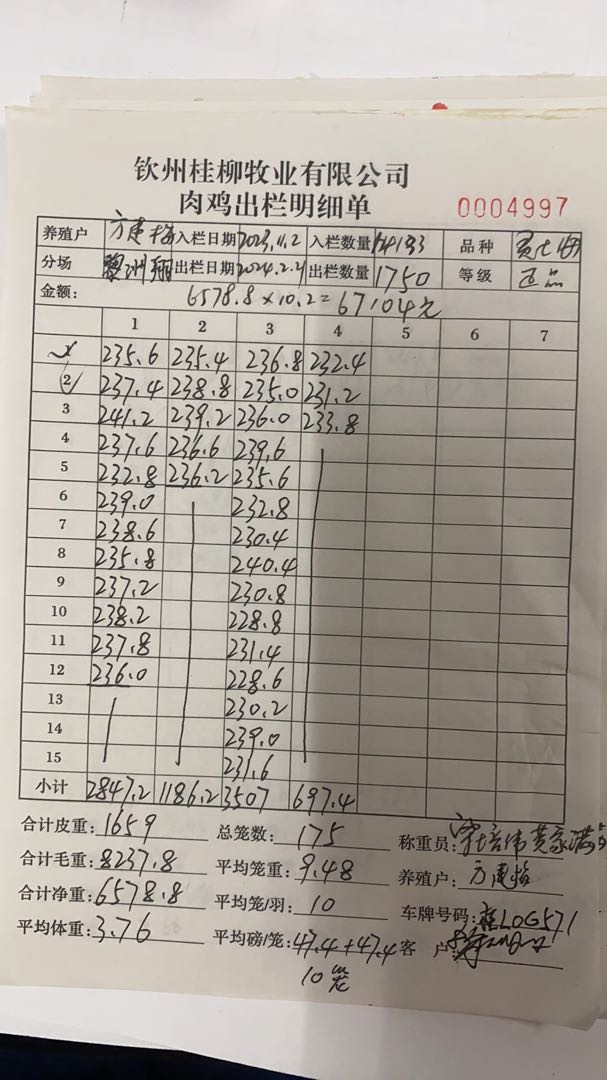 钦州桂柳牧业有限公司
肉鸡出栏明细单
0004997
养殖户 方建梅 入栏日期 2023.11.2 入栏数量 品种
分场 黎洲翔 出栏日期 2024.2.21 出栏数量 1750 等级 正品
金额: 6578.8×10.2=67104元
1 2 3 4 5 6 7
1 235.6 235.4 236.8 232.4
2 237.4 238.8 235.0 231.2
3 241.2 239.2 236.0 233.8
4 237.6 236.6 239.6
5 232.8 236.2 235.6
6 239.0 232.8
7 238.6 230.4
8 235.8 240.4
9 237.2 230.8
10 238.2 228.8
11 237.8 231.4
12 236.0 228.6
13 230.2
14 239.0
15 231.6
小计 2847.2 1186.2 3507 697.4
合计皮重: 1659 总笼数: 175 称重员:
合计毛重: 8237.8 平均笼重: 9.48 养殖户: 方建梅
合计净重: 6578.8 平均笼/羽: 10 车牌号码: 桂LOG571
平均体重: 3.76 平均磅/笼: 47.4+47.4 客户:
10笼